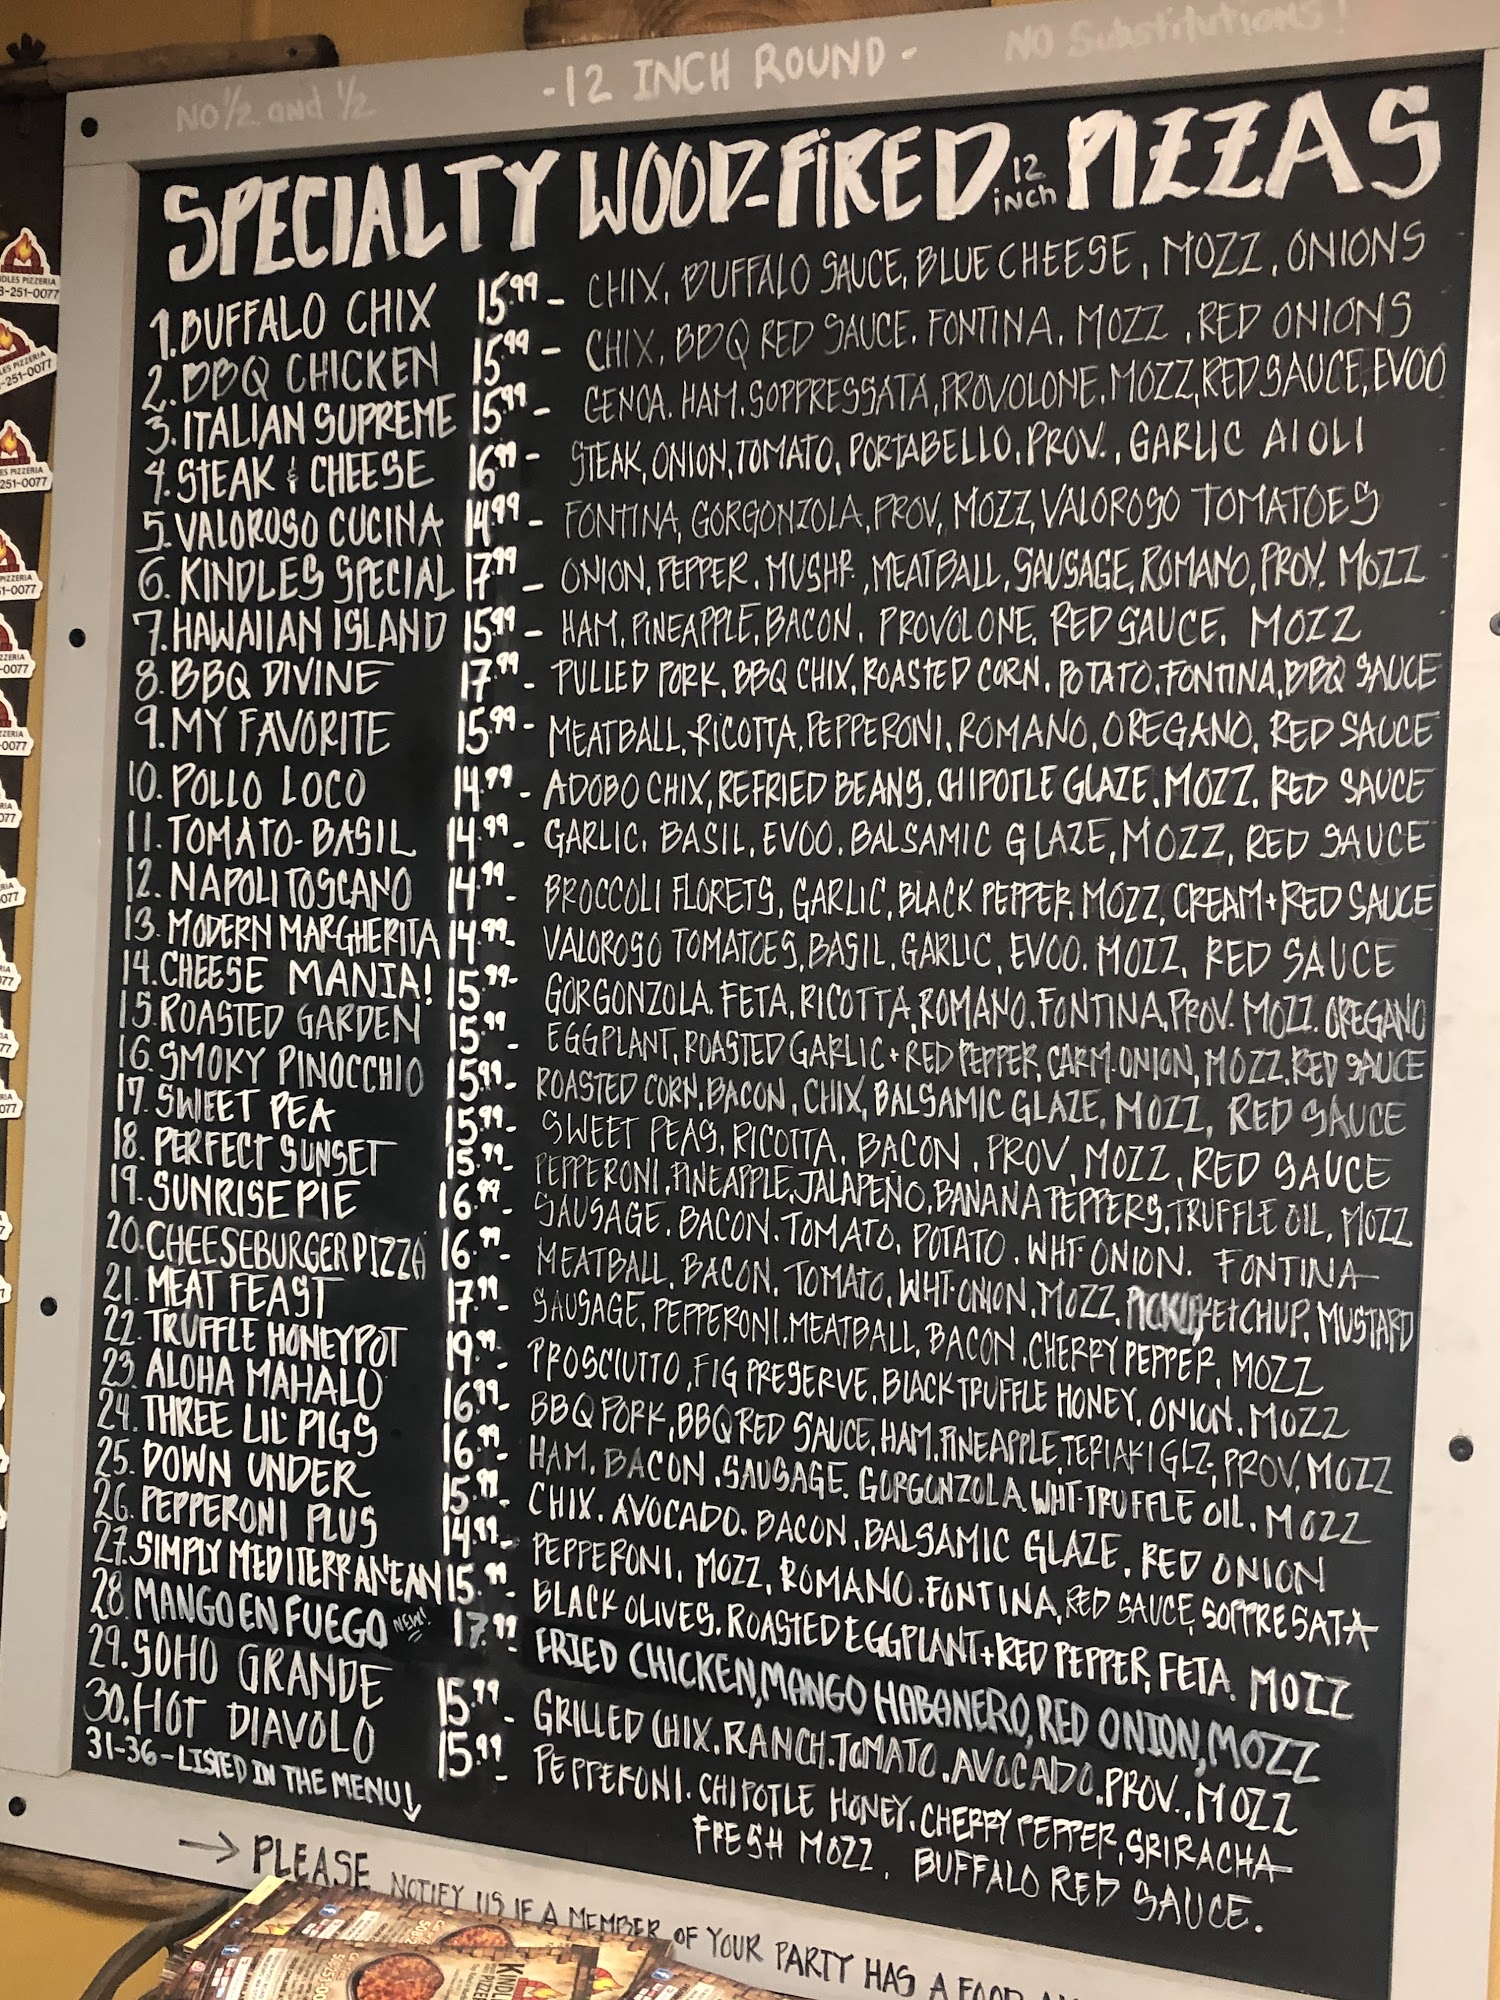 NO 1/2 and 1/2
-12 INCH ROUND-
NO Substitutions!
SPECIALTY WOOD-FIRED 12 inch PIZZAS
1. BUFFALO CHIX 15.99 - CHIX, BUFFALO SAUCE, BLUE CHEESE, MOZZ, ONIONS
2. BBQ CHICKEN 15.99 - CHIX, BBQ RED SAUCE, FONTINA, MOZZ, RED ONIONS
3. ITALIAN SUPREME 15.99 - GENOA, HAM, SOPPRESSATA, PROVOLONE, MOZZ, RED SAUCE, EVOO
4. STEAK & CHEESE 16.99 - STEAK, ONION, TOMATO, PORTABELLO, PROV., GARLIC AIOLI
5. VALOROSO CUCINA 14.99 - FONTINA, GORGONZOLA, PROV, MOZZ, VALOROSO TOMATOES
6. KINDLES SPECIAL 17.99 - ONION, PEPPER, MUSHR., MEATBALL, SAUSAGE, ROMANO, PROV. MOZZ
7. HAWAIIAN ISLAND 15.99 - HAM, PINEAPPLE, BACON, PROVOLONE, RED SAUCE, MOZZ
8. BBQ DIVINE 17.99 - PULLED PORK, BBQ CHIX, ROASTED CORN, POTATO, FONTINA, BBQ SAUCE
9. MY FAVORITE 15.99 - MEATBALL, RICOTTA, PEPPERONI, ROMANO, OREGANO, RED SAUCE
10. POLLO LOCO 14.99 - ADOBO CHIX, REFRIED BEANS, CHIPOTLE GLAZE, MOZZ, RED SAUCE
11. TOMATO-BASIL 14.99 - GARLIC, BASIL, EVOO, BALSAMIC GLAZE, MOZZ, RED SAUCE
12. NAPOLI TOSCANO 14.99 - BROCCOLI FLORETS, GARLIC, BLACK PEPPER, MOZZ, CREAM + RED SAUCE
13. MODERN MARGHERITA 14.99 - VALOROSO TOMATOES, BASIL, GARLIC, EVOO, MOZZ, RED SAUCE
14. CHEESE MANIA! 15.99 - GORGONZOLA, FETA, RICOTTA, ROMANO, FONTINA, PROV. MOZZ. OREGANO
15. ROASTED GARDEN 15.99 - EGGPLANT, ROASTED GARLIC + RED PEPPER, CARM. ONION, MOZZ, RED SAUCE
16. SMOKY PINOCCHIO 15.99 - ROASTED CORN, BACON, CHIX, BALSAMIC GLAZE, MOZZ, RED SAUCE
17. SWEET PEA 15.99 - SWEET PEAS, RICOTTA, BACON, PROV, MOZZ, RED SAUCE
18. PERFECT SUNSET 15.99 - PEPPERONI, PINEAPPLE, JALAPEÑO, BANANA PEPPERS, TRUFFLE OIL, MOZZ
19. SUNRISE PIE 16.99 - SAUSAGE, BACON, TOMATO, POTATO, WHT. ONION, FONTINA
20. CHEESEBURGER PIZZA 16.99 - MEATBALL, BACON, TOMATO, WHT. ONION, MOZZ, PICKLE, KETCHUP, MUSTARD
21. MEAT FEAST 17.99 - SAUSAGE, PEPPERONI, MEATBALL, BACON, CHERRY PEPPER, MOZZ
22. TRUFFLE HONEYPOT 19.99 - PROSCIUTTO, FIG PRESERVE, BLACK TRUFFLE HONEY, ONION, MOZZ
23. ALOHA MAHALO 16.99 - BBQ PORK, BBQ RED SAUCE, HAM, PINEAPPLE, TERIAKI GLZ., PROV, MOZZ
24. THREE LIL' PIGS 16.99 - HAM, BACON, SAUSAGE, GORGONZOLA, WHT. TRUFFLE OIL, MOZZ
25. DOWN UNDER 15.99 - CHIX, AVOCADO, BACON, BALSAMIC GLAZE, RED ONION
26. PEPPERONI PLUS 14.99 - PEPPERONI, MOZZ, ROMANO, FONTINA, RED SAUCE, SOPPRESATA
27. SIMPLY MEDITERRANEAN 15.99 - BLACK OLIVES, ROASTED EGGPLANT + RED PEPPER, FETA, MOZZ
28. MANGO EN FUEGO NEW! 17.99 FRIED CHICKEN, MANGO HABANERO, RED ONION, MOZZ
29. SOHO GRANDE 15.99 - GRILLED CHIX, RANCH, TOMATO, AVOCADO, PROV., MOZZ
30. HOT DIAVOLO 15.99 - PEPPERONI, CHIPOTLE HONEY, CHERRY PEPPER, SRIRACHA
FRESH MOZZ, BUFFALO RED SAUCE.
31-36 - LISTED IN THE MENU↓
→ PLEASE NOTIFY US IF A MEMBER OF YOUR PARTY HAS A FOOD